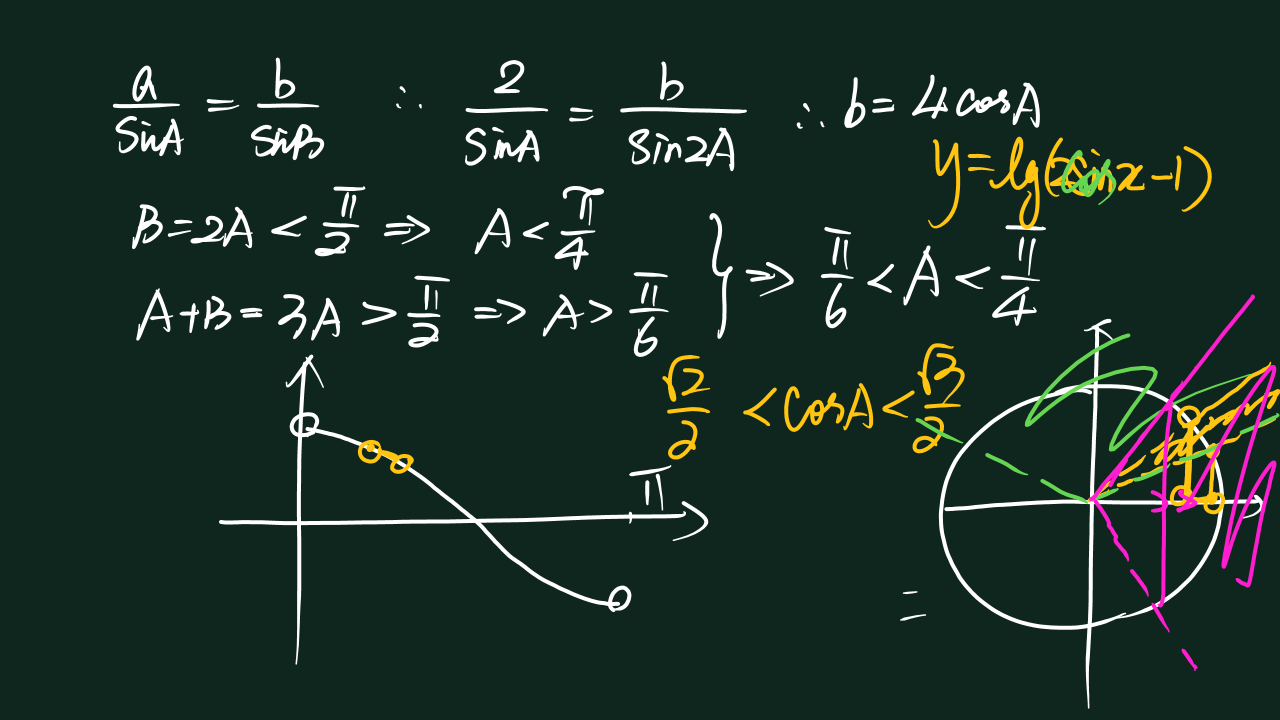 a/sinA = b/sinB ∴ 2/sinA = b/sin2A ∴ b = 4cosA
y = lg(2 x - 1)
B = 2A < π/2 ⇒ A < π/4
A + B = 3A > π/2 ⇒ A > π/6
} ⇒ π/6 < A < π/4
√2/2 < cosA < √3/2
π
=